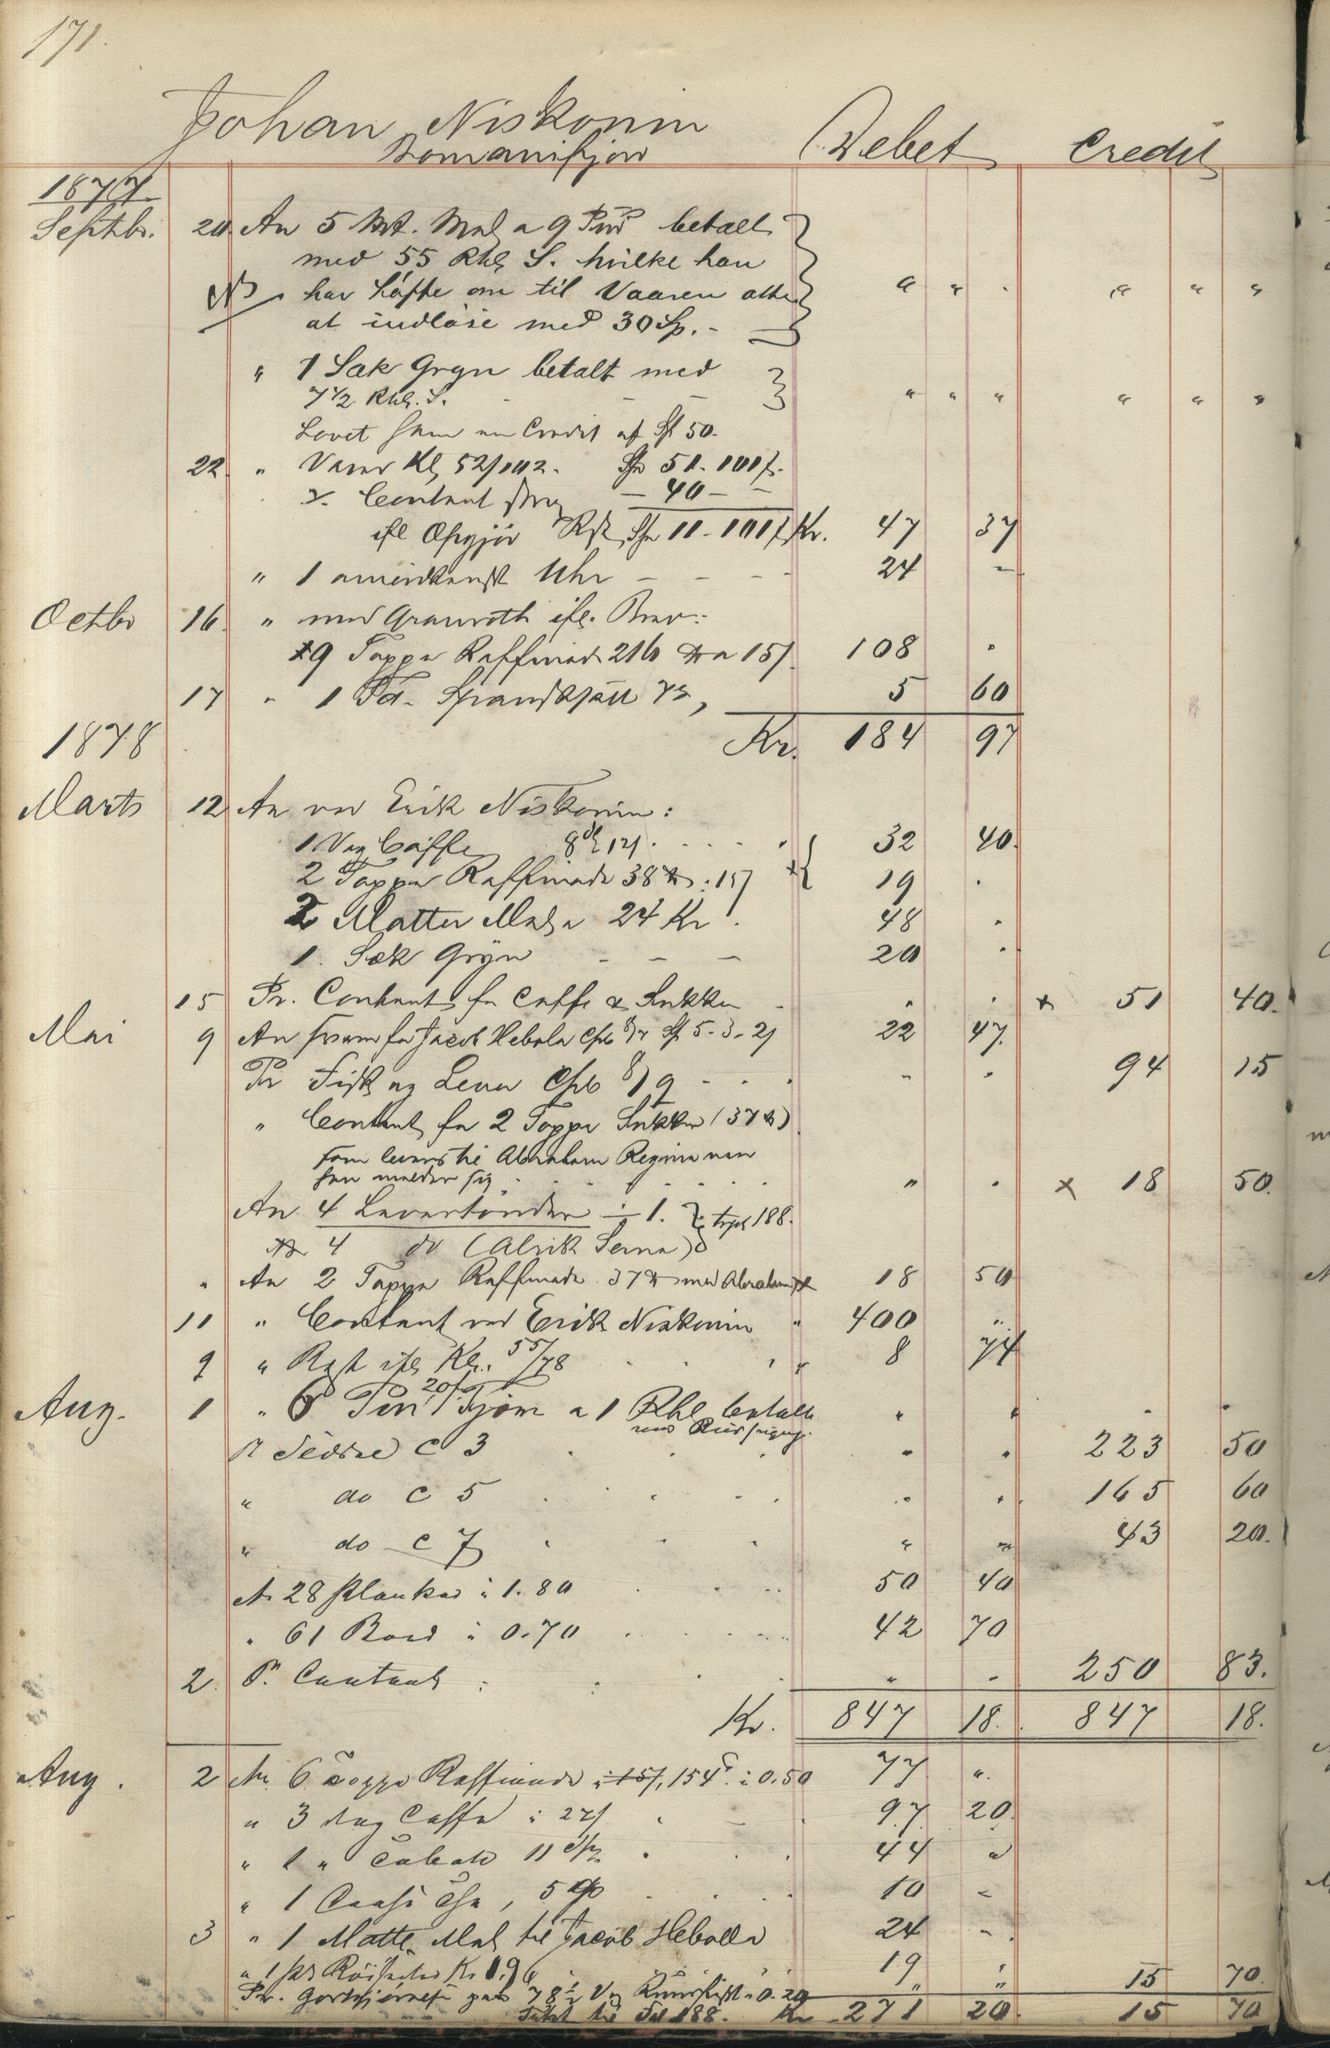 171.
Johan Niskonin
Debet Credit
1877
Septbr. 20. An 5 Mt. Mel a 9 betalt
med 55 Rbl S. hvilke han
har løfte om til Vaaren atter " " . " " "
at indløse med 30 Sp. -
" 1 Sæk Gryn betalt med
7 1/2 Rbl. S. - - - " " " " " "
Lovet ham en Credit af Sp 50.
22. " Varer Kl 52/102. Sp 51 - 101 s.
Contant - 40 - -
ifl Opgjör Rest Sp 11 - 101 s Kr. 47 37
" 1 amerikansk Uhr - - - - 24 -
Octbr 16. " med Granroth ifl. Brev:
x9 Toppe Raffinade 216 ℔ a 15s. 108 .
17 " 1 Td. 5 60
1878 Kr. 184 97
Marts 12 An ved Erik Niskonin:
1 Vog Caffe 32 40.
2 Toppe Raffinade 38 ℔ : 15s x 19 .
2 Matter Mel a 24 Kr. 48 .
1. Sæk Gryn - - - 20 .
15 Pr. Contant for Caffe & Sukker - . . x 51 40.
Mai 9 An for Jacob Hebola Sp 5-3-21 22 47.
Pr Fisk og Lever 8/9 - . . " . 94 15
" Contant for 2 Toppe Sukker (37 ℔)
som leveres til Abraham når
han melder sig . . . . " . x 18 50.
An 4 Levertönder ÷ 1. 188.
4 do
" An 2 Toppe Raffinade 37 ℔ med Abraham 18 50
11 " Contant ved Erik Niskonin " 400 "
9 " Rest ifl Kl. 55/78 . . . 8 74
Aug. 1 " 6 Tjære a 1 Rbl betalt " " . .
med
Pr C 3 . . . " . 223 50
" do C 5 . . . . . . 165 60
" do C 7 . . . " " 43 20.
An 28 Planker a 1.80 . . . 50 40
" 61 Bord a 0.70 . . . . 42 70
2. Pr. Contant . . . . " . 250 83.
Kr. 847 18. 847 18.
Aug. 2 An 6 Toppe Raffinade a 15s, 154 a 0.50 77 "
" 3 Vog Caffe a 27s . - . 97. 20.
" 1 " Tobak 11 . . . 44 "
" 1 5 . . . 10 -
3 " 1 Matte Mel til Jacob Hebolla 24 -
" 1 19 "
Pr. 78 1/2 Vog a 0.20 " " 15 70.
188. Kr 271 20. 15 70